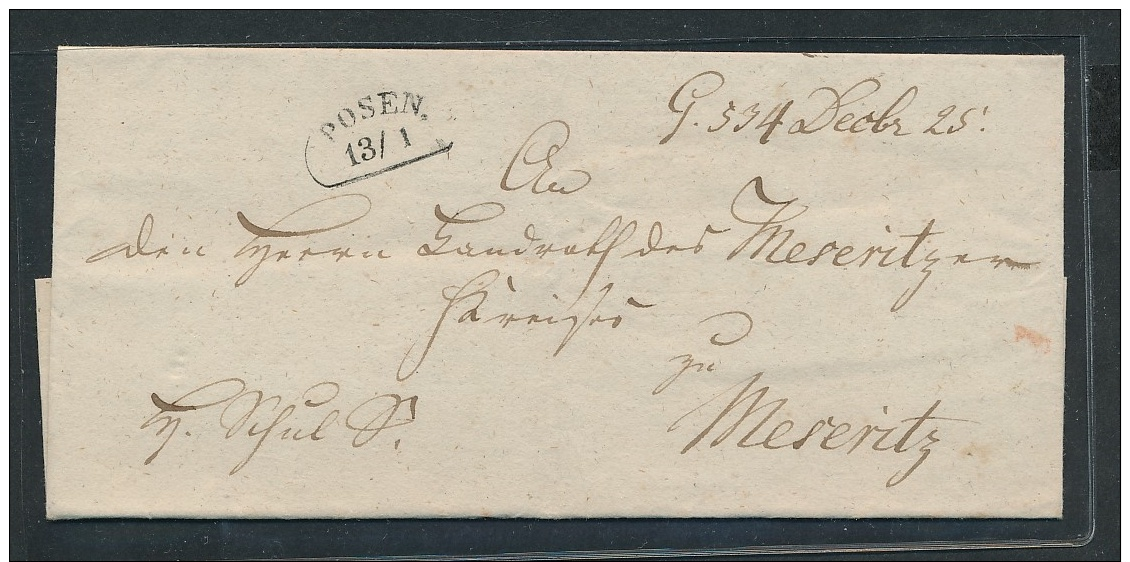 POSEN.
13/1
G. 534 Decbr 25.
An
den Herrn Landrath des Meseritzer
Kreises
zu
Meseritz
H. Schul S.